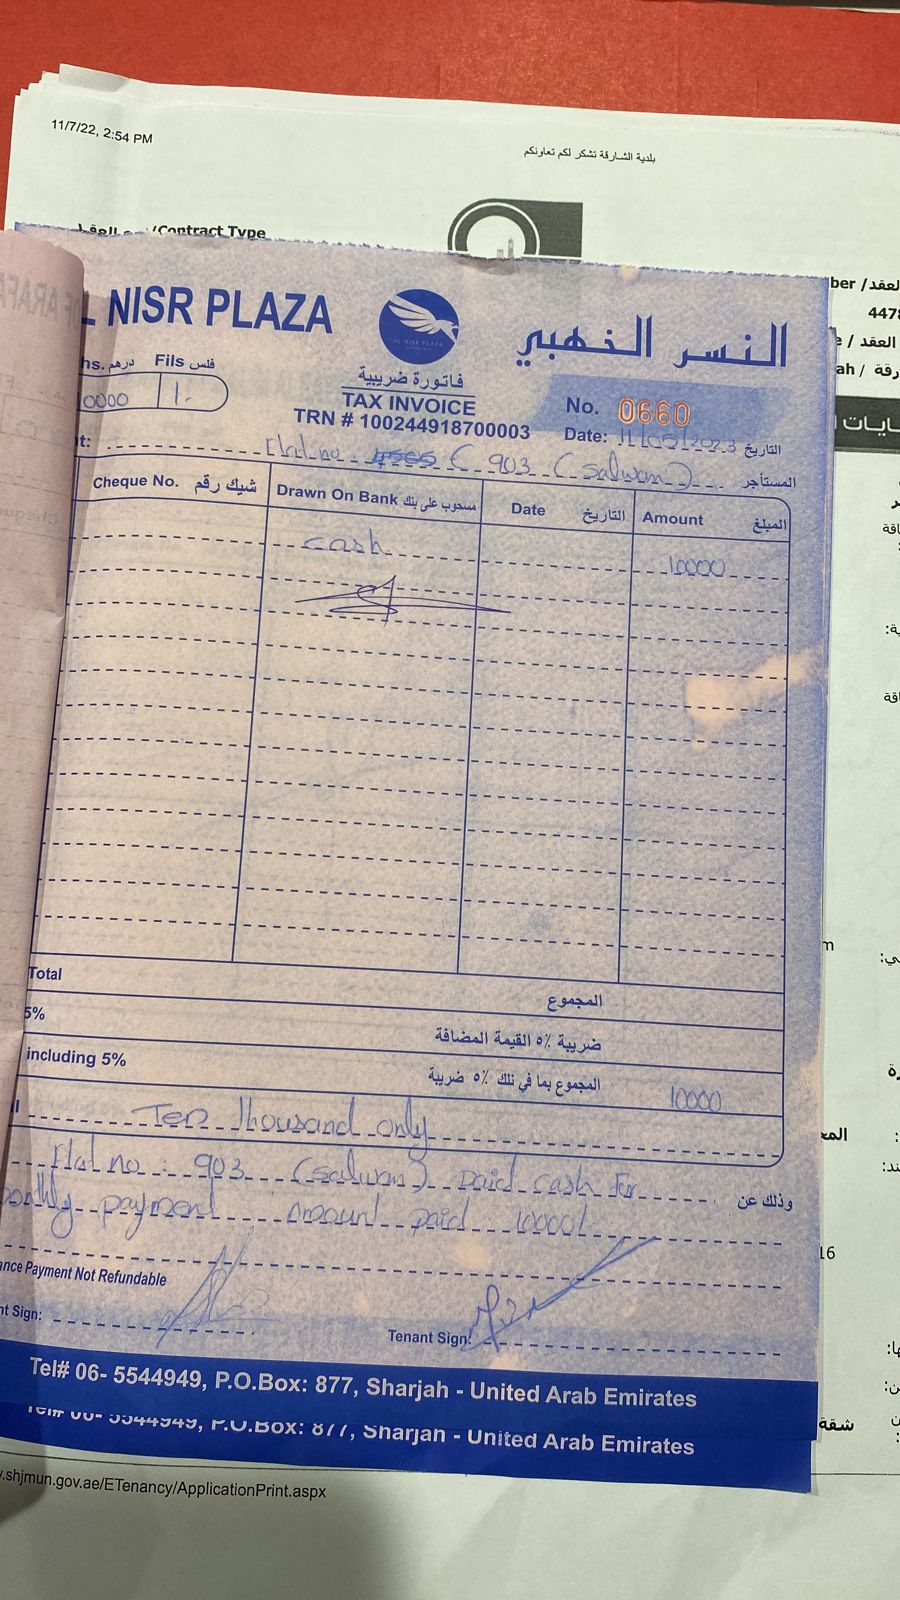 11/7/22, 2:54 PM
بلدية الشارقة تشكر لكم تعاونكم
/Contract Type
العقد/ ber
4478
العقد /
رقة / ah
L NISR PLAZA
AL NISR PLAZA
النسر الخهبي
hs. درهم Fils فلس
0000 1.
فاتورة ضريبية
TAX INVOICE
TRN # 100244918700003
No. 0660
Date: 11/05/2023 التاريخ
t: Flat no 903 (salwan) المستأجر
Cheque No. شيك رقم Drawn On Bank مسحوب على بنك Date التاريخ Amount المبلغ
cash 10000
Total المجموع
5% ضريبة ٥٪ القيمة المضافة
including 5% المجموع بما في ذلك ٥٪ ضريبة 10000
Ten thousand only
Flat no : 903 (salwan) paid cash for وذلك عن
onthly payment amount paid 10000/
ance Payment Not Refundable
nt Sign: Tenant Sign:
Tel# 06- 5544949, P.O.Box: 877, Sharjah - United Arab Emirates
Tel# 06- 5544949, P.O.Box: 877, Sharjah - United Arab Emirates
16
شقة
.shjmun.gov.ae/ETenancy/ApplicationPrint.aspx